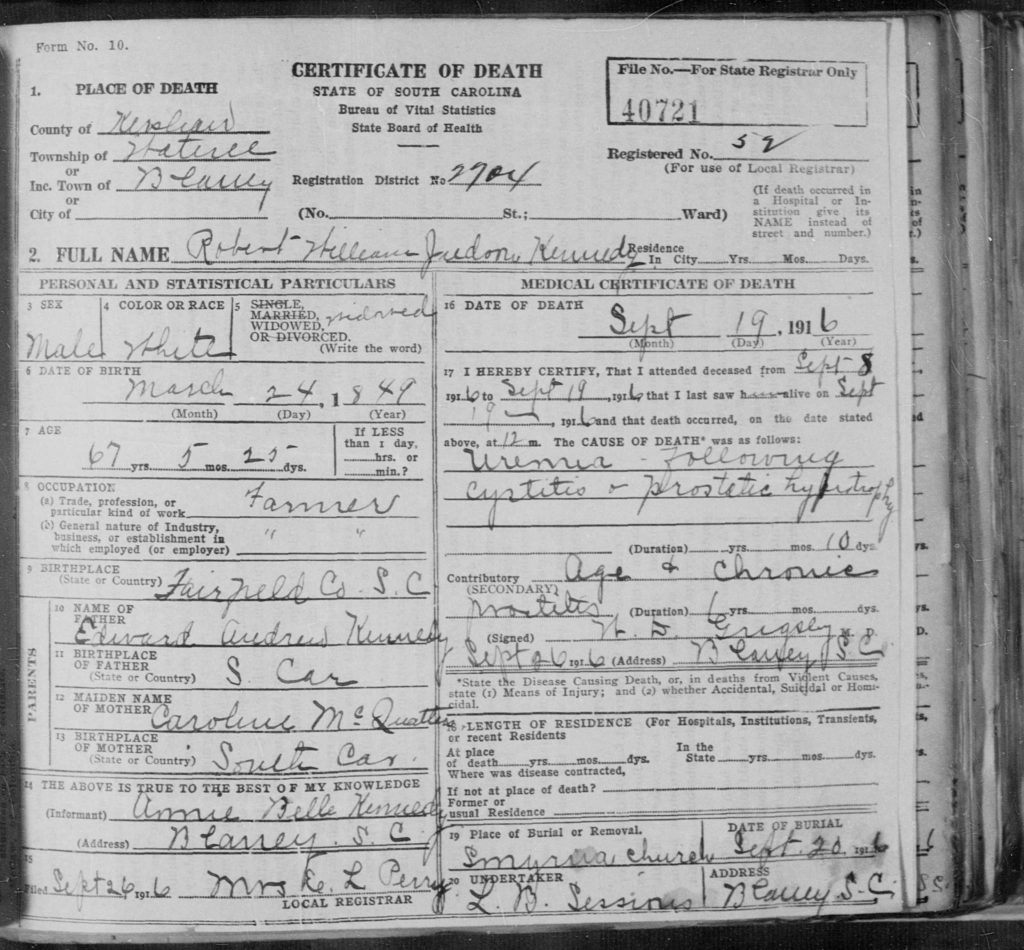 Form No. 10.
1. PLACE OF DEATH
County of Kershaw
Township of Wateree
or
Inc. Town of Blaney
or
City of
CERTIFICATE OF DEATH
STATE OF SOUTH CAROLINA
Bureau of Vital Statistics
State Board of Health
Registration District No 2704
(No. St.; Ward)
File No.—For State Registrar Only
40721
Registered No. 52
(For use of Local Registrar)
(If death occurred in
a Hospital or In-
stitution give its
NAME instead of
street and number.)
2. FULL NAME Robert William Kennedy
Residence
In City Yrs. Mos. Days.
PERSONAL AND STATISTICAL PARTICULARS
3 SEX
Male
4 COLOR OR RACE
White
5 SINGLE,
MARRIED,
WIDOWED, widowed
OR DIVORCED.
(Write the word)
6 DATE OF BIRTH
March 24, 1849
(Month) (Day) (Year)
7 AGE
67 yrs. 5 mos. 25 ds.
If LESS
than 1 day,
hrs. or
min.?
8 OCCUPATION
(a) Trade, profession, or
particular kind of work Farmer
(b) General nature of Industry,
business, or establishment in
which employed (or employer) " "
9 BIRTHPLACE
(State or Country) Fairfield Co. S.C
PARENTS
10 NAME OF
FATHER
Edward Andrew Kennedy
11 BIRTHPLACE
OF FATHER
(State or Country) S. Car
12 MAIDEN NAME
OF MOTHER Caroline
13 BIRTHPLACE
OF MOTHER
(State or Country) South Car.
14 THE ABOVE IS TRUE TO THE BEST OF MY KNOWLEDGE
(Informant) Annie Belle Kennedy
(Address) Blaney. S.C.
15
Filed Sept 26 1916 Mrs L Perry
LOCAL REGISTRAR
MEDICAL CERTIFICATE OF DEATH
16 DATE OF DEATH
Sept 19, 1916
(Month) (Day) (Year)
17 I HEREBY CERTIFY, That I attended deceased from Sept 8
1916 to Sept 19, 1916 that I last saw h alive on Sept
19, 1916 and that death occurred, on the date stated
above, at 12 m. The CAUSE OF DEATH* was as follows:
Uremia - Following
Cystitis & prostatic hypertrophy
(Duration) yrs. mos. 10 dys.
Contributory Age & Chronic
(SECONDARY)
prostatitis (Duration) 6 yrs. mos. dys.
(Signed) W. D. Grigsby M. D.
Sept 26 1916 (Address) Blaney S.C.
*State the Disease Causing Death, or, in deaths from Violent Causes,
state (1) Means of Injury; and (2) whether Accidental, Suicidal or Homi-
cidal.
18 LENGTH OF RESIDENCE (For Hospitals, Institutions, Transients,
or recent Residents
At place
of death yrs. mos. dys.
In the
State yrs. mos. dys.
Where was disease contracted,
If not at place of death?
Former or
usual Residence
19 Place of Burial or Removal.
Smyrna church
DATE OF BURIAL
Sept. 20, 1916
20 UNDERTAKER
L. B. Sessions
ADDRESS
Blaney S.C.